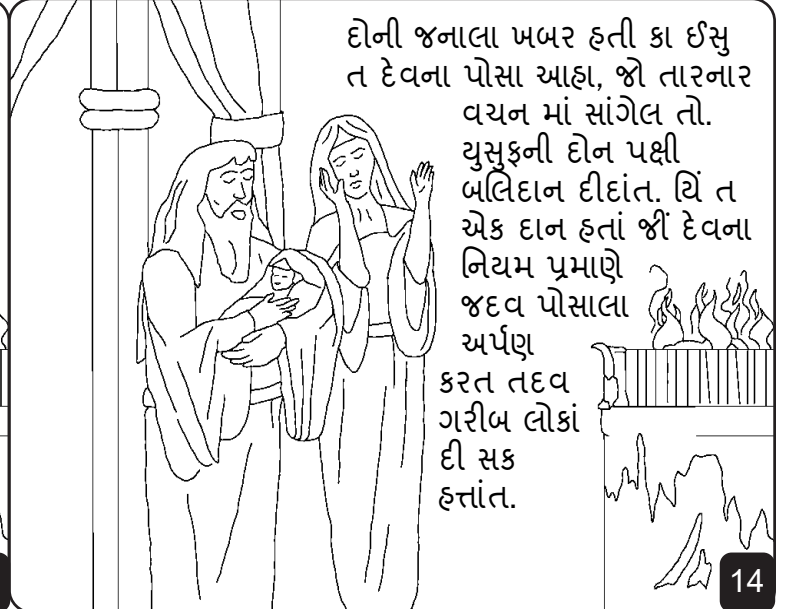 દોની જનાલા ખબર હતી કા ઈસુ
ત દેવના પોસા આહા, જો તારનાર
વચન માં સાંગેલ તો.
યુસુફની દોન પક્ષી
બલિદાન દીદાંત. યિં ત
એક દાન હતાં જીં દેવના
નિયમ પ્રમાણે
જદવ પોસાલા
અર્પણ
કરત તદવ
ગરીબ લોકાં
દી સક
હત્તાંત.
14